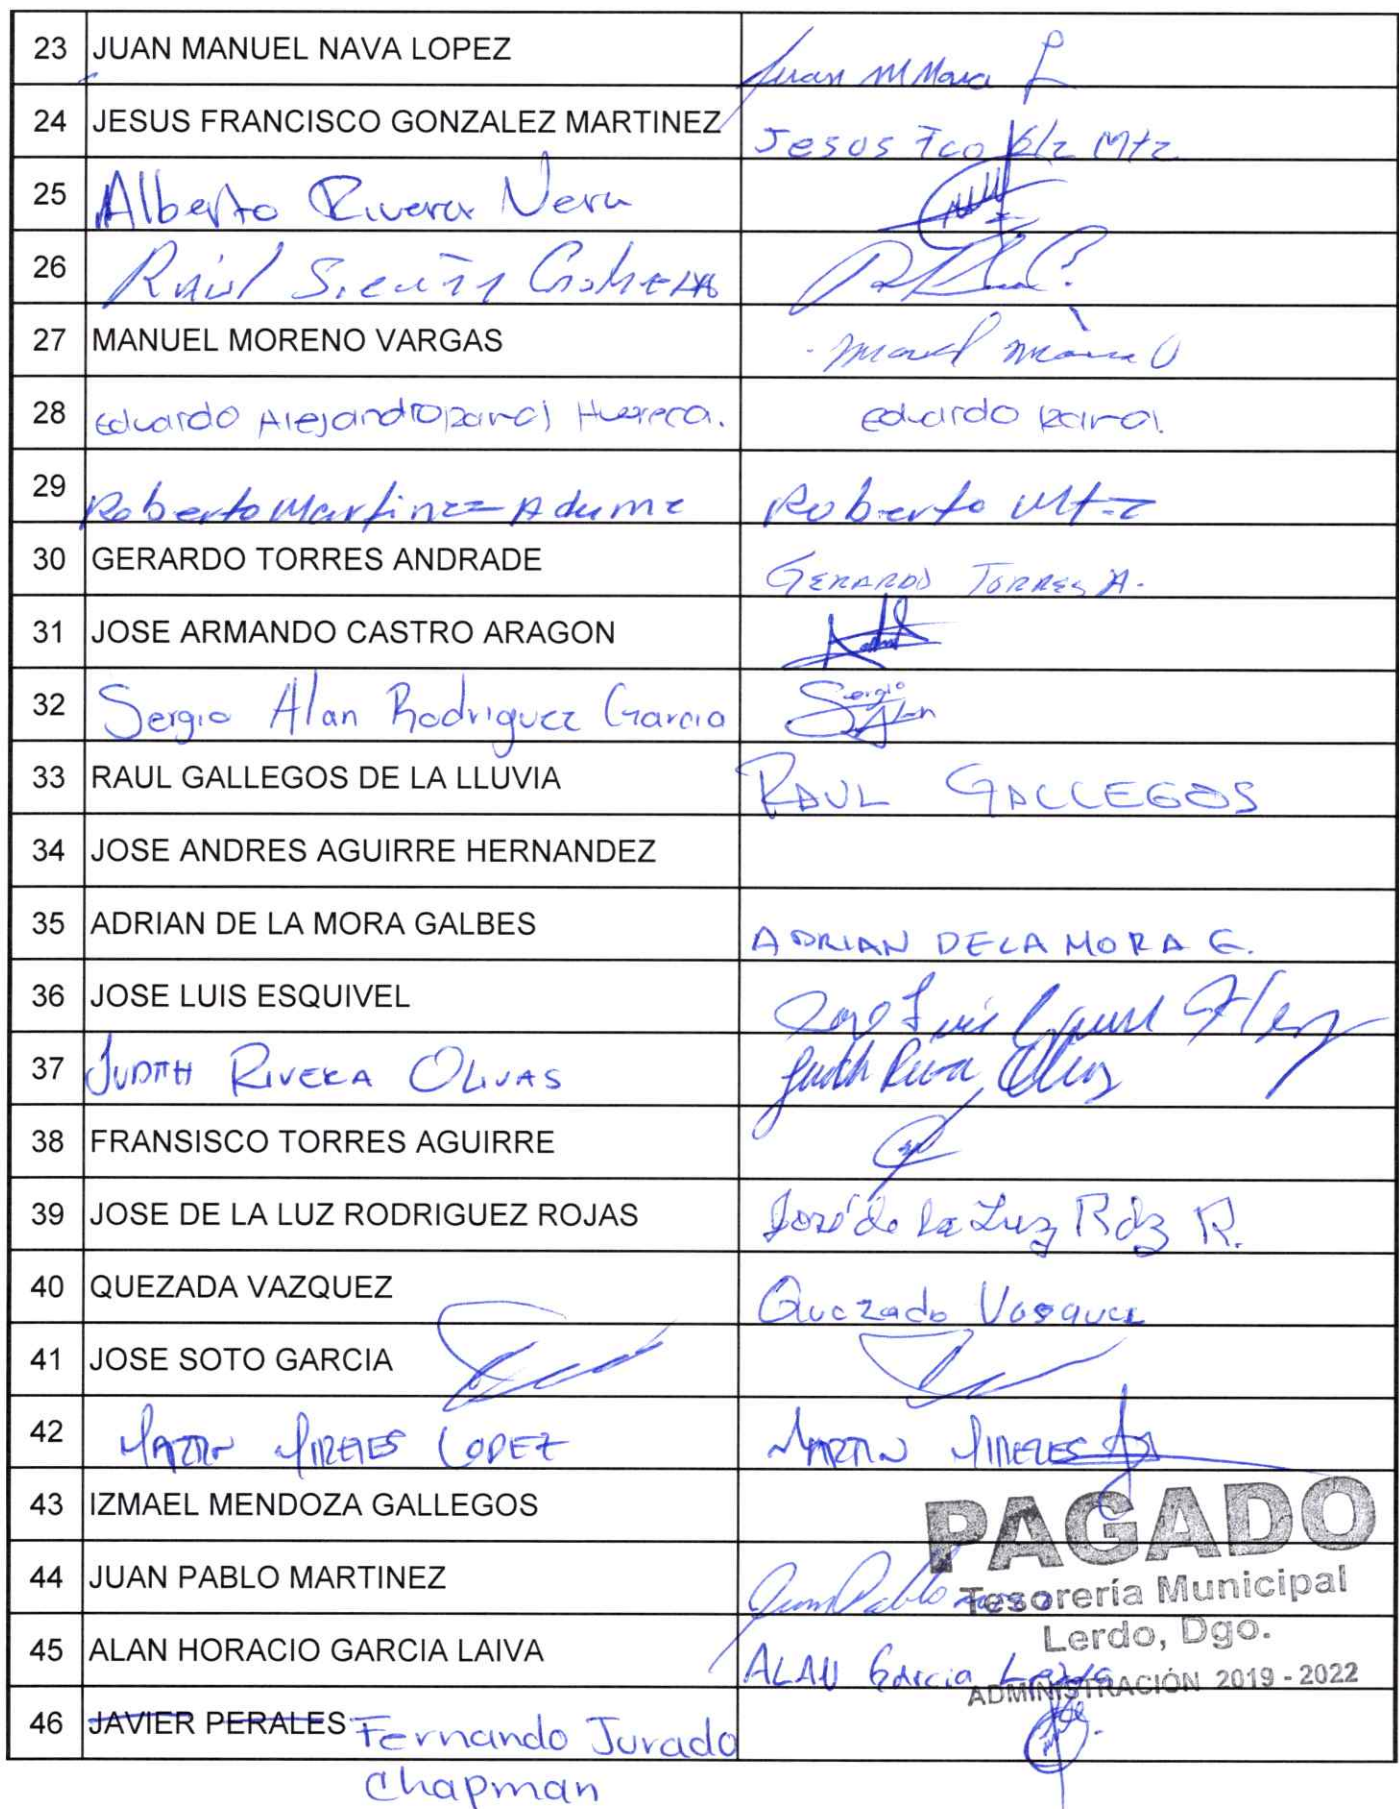 23 JUAN MANUEL NAVA LOPEZ Juan M Nava L
24 JESUS FRANCISCO GONZALEZ MARTINEZ Jesus Fco Glz Mtz
25 Alberto Rivera Vera
26 Raúl Sicuña
27 MANUEL MORENO VARGAS Manuel
28 Eduardo Alejandro Parral Herrera. Eduardo Parral.
29 Roberto Martinez Adame Roberto Mtz
30 GERARDO TORRES ANDRADE GERARDO TORRES A.
31 JOSE ARMANDO CASTRO ARAGON
32 Sergio Alan Rodriguez Garcia Sergio Alan
33 RAUL GALLEGOS DE LA LLUVIA RAUL GALLEGOS
34 JOSE ANDRES AGUIRRE HERNANDEZ
35 ADRIAN DE LA MORA GALBES ADRIAN DE LA MORA G.
36 JOSE LUIS ESQUIVEL Jose Luis
37 JUDITH RIVERA OLIVAS Judith
38 FRANSISCO TORRES AGUIRRE
39 JOSE DE LA LUZ RODRIGUEZ ROJAS José de la Luz Rdz R.
40 QUEZADA VAZQUEZ Quezada Vasquez
41 JOSE SOTO GARCIA
42 MARTIN MIRELES LOPEZ MARTIN MIRELES
43 IZMAEL MENDOZA GALLEGOS
PAGADO
44 JUAN PABLO MARTINEZ Juan Pablo
Tesorería Municipal
Lerdo, Dgo.
45 ALAN HORACIO GARCIA LAIVA ALAN Garcia
ADMINISTRACIÓN 2019 - 2022
46 JAVIER PERALES Fernando Jurado
Chapman